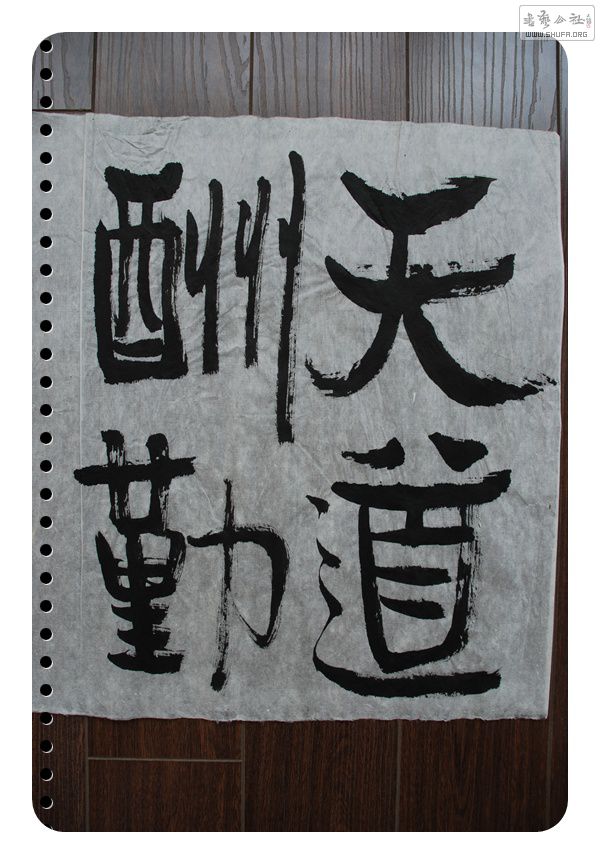 天道
酬勤
書藝公社
WWW.SHUFA.ORG